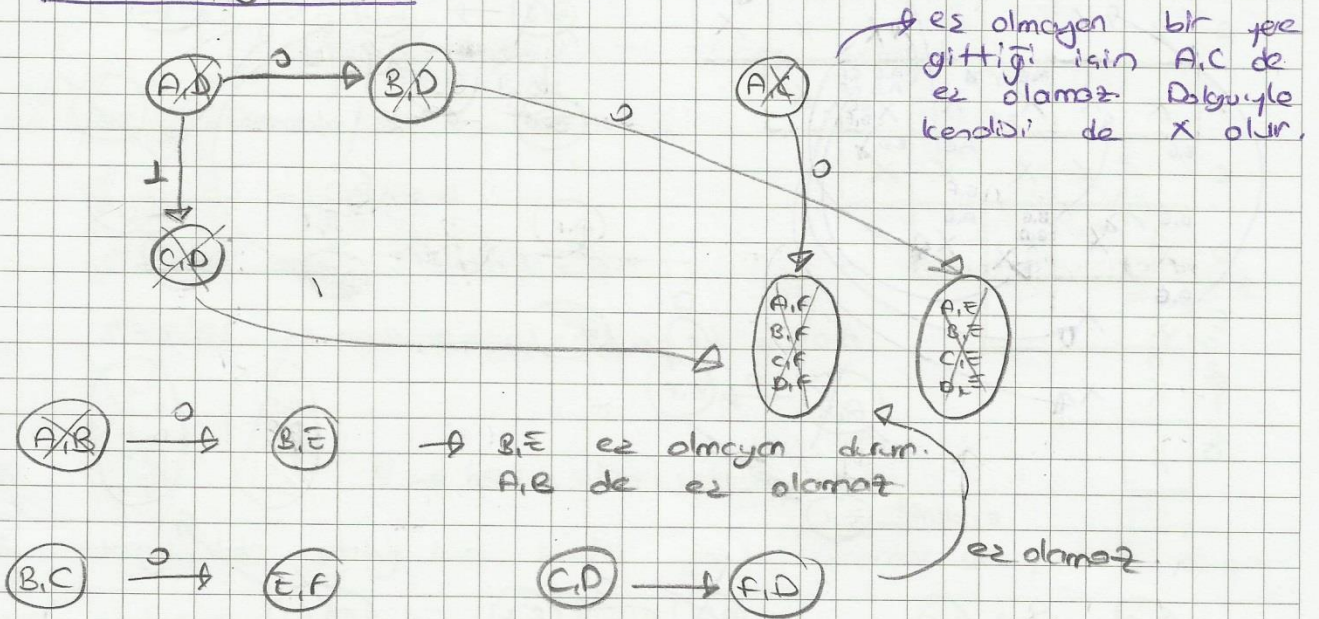 eş olmayan bir yere
gittiği için A,C de
eş olamaz. Dolayısıyla
kendisi de X olur.
A,D
0
B,D
A,C
0
0
1
C,D
1
A,F
B,F
C,F
D,F
A,E
B,E
C,E
D,E
A,B
0
B,E
B,E eş olmayan durum.
A,B de eş olamaz
B,C
0
E,F
C,D
F,D
eş olamaz